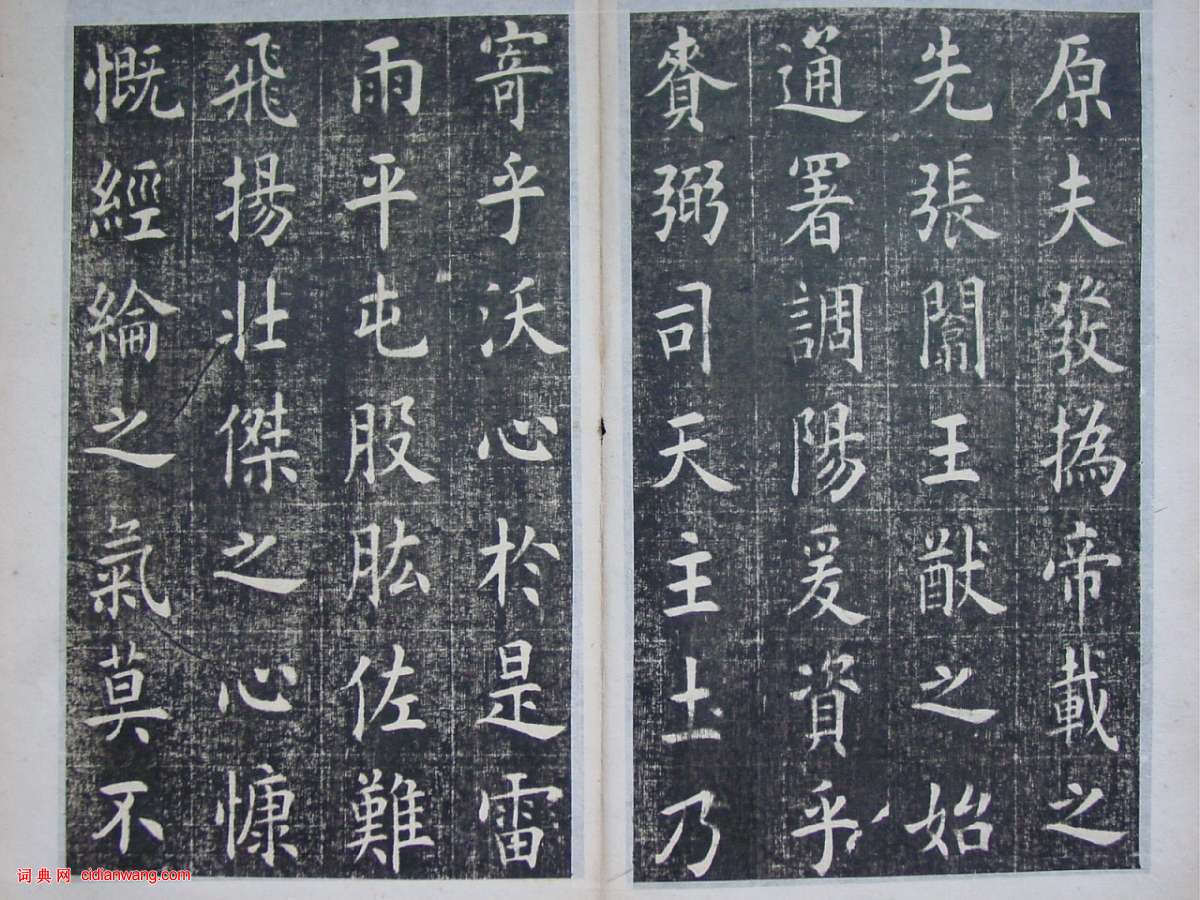 原夫發撝帝載之
先張闡王猷之始
通署調陽爰資乎
賚弼司天主土乃
寄乎沃心於是雷
雨平屯股肱佐難
飛揚壯傑之心慷
慨經綸之氣莫不
词典网 cidianwang.com